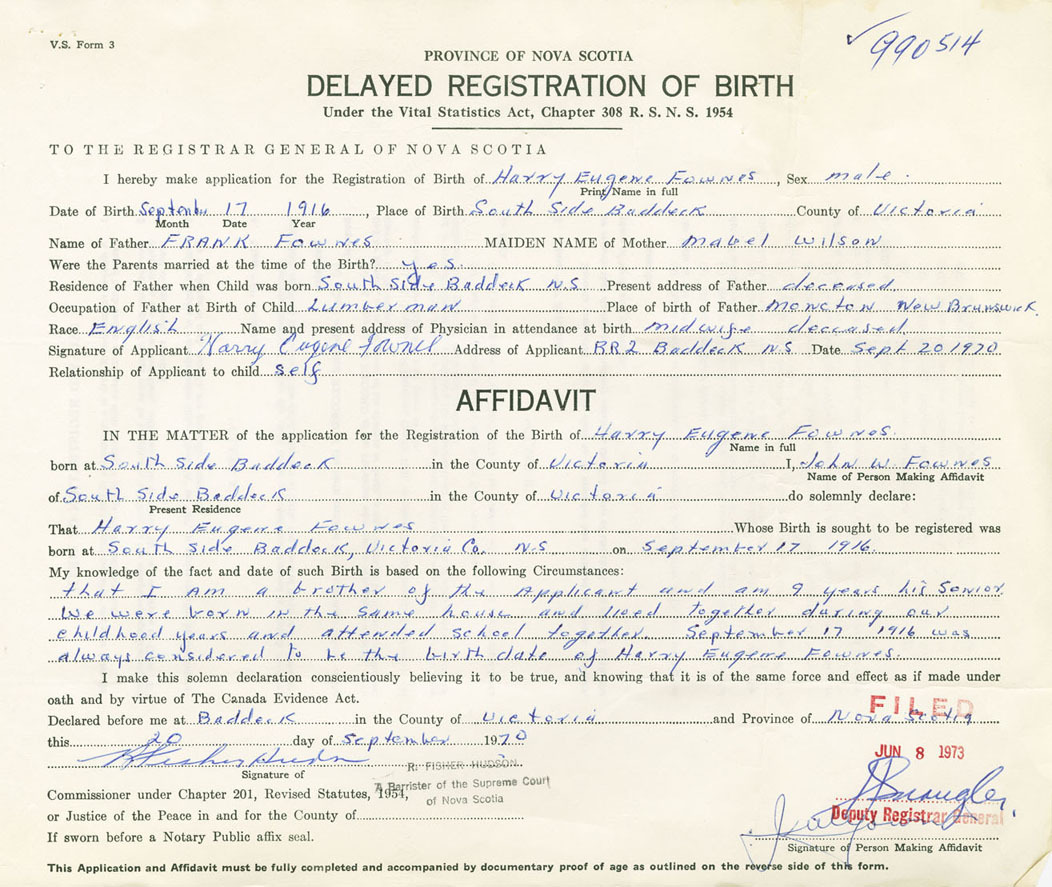 V.S. Form 3
990514
PROVINCE OF NOVA SCOTIA
DELAYED REGISTRATION OF BIRTH
Under the Vital Statistics Act, Chapter 308 R. S. N. S. 1954
TO THE REGISTRAR GENERAL OF NOVA SCOTIA
I hereby make application for the Registration of Birth of Harry Eugene Fownes, Sex male.
Print Name in full
Date of Birth September 17 1916, Place of Birth South Side Baddeck County of Victoria
Month Date Year
Name of Father FRANK Fownes MAIDEN NAME of Mother Mabel Wilson
Were the Parents married at the time of the Birth? yes.
Residence of Father when Child was born South Side Baddeck N.S Present address of Father deceased
Occupation of Father at Birth of Child Lumberman Place of birth of Father Moncton New Brunswick.
Race English Name and present address of Physician in attendance at birth midwife deceased
Signature of Applicant Harry Eugene Fownes Address of Applicant RR2 Baddeck NS Date Sept 20 1970
Relationship of Applicant to child self
AFFIDAVIT
IN THE MATTER of the application for the Registration of the Birth of Harry Eugene Fownes.
Name in full
born at South Side Baddeck in the County of Victoria I, John W. Fownes
Name of Person Making Affidavit
of South Side Baddeck in the County of Victoria do solemnly declare:
Present Residence
That Harry Eugene Fownes Whose Birth is sought to be registered was
born at South Side Baddeck, Victoria Co. N.S on September 17 1916.
My knowledge of the fact and date of such Birth is based on the following Circumstances:
that I am a brother of the Applicant and am 9 years his senior
We were born in the same house and lived together during our
childhood years and attended school together. September 17 1916 was
always considered to be the birth date of Harry Eugene Fownes.
I make this solemn declaration conscientiously believing it to be true, and knowing that it is of the same force and effect as if made under
oath and by virtue of The Canada Evidence Act.
FILED
Declared before me at Baddeck in the County of Victoria and Province of Nova Scotia
this 20 day of September 1970
JUN 8 1973
R. Fisher Hudson
R. FISHER HUDSON
Signature of
A Barrister of the Supreme Court
of Nova Scotia
Commissioner under Chapter 201, Revised Statutes, 1954,
or Justice of the Peace in and for the County of
Deputy Registrar General
If sworn before a Notary Public affix seal.
Signature of Person Making Affidavit
This Application and Affidavit must be fully completed and accompanied by documentary proof of age as outlined on the reverse side of this form.